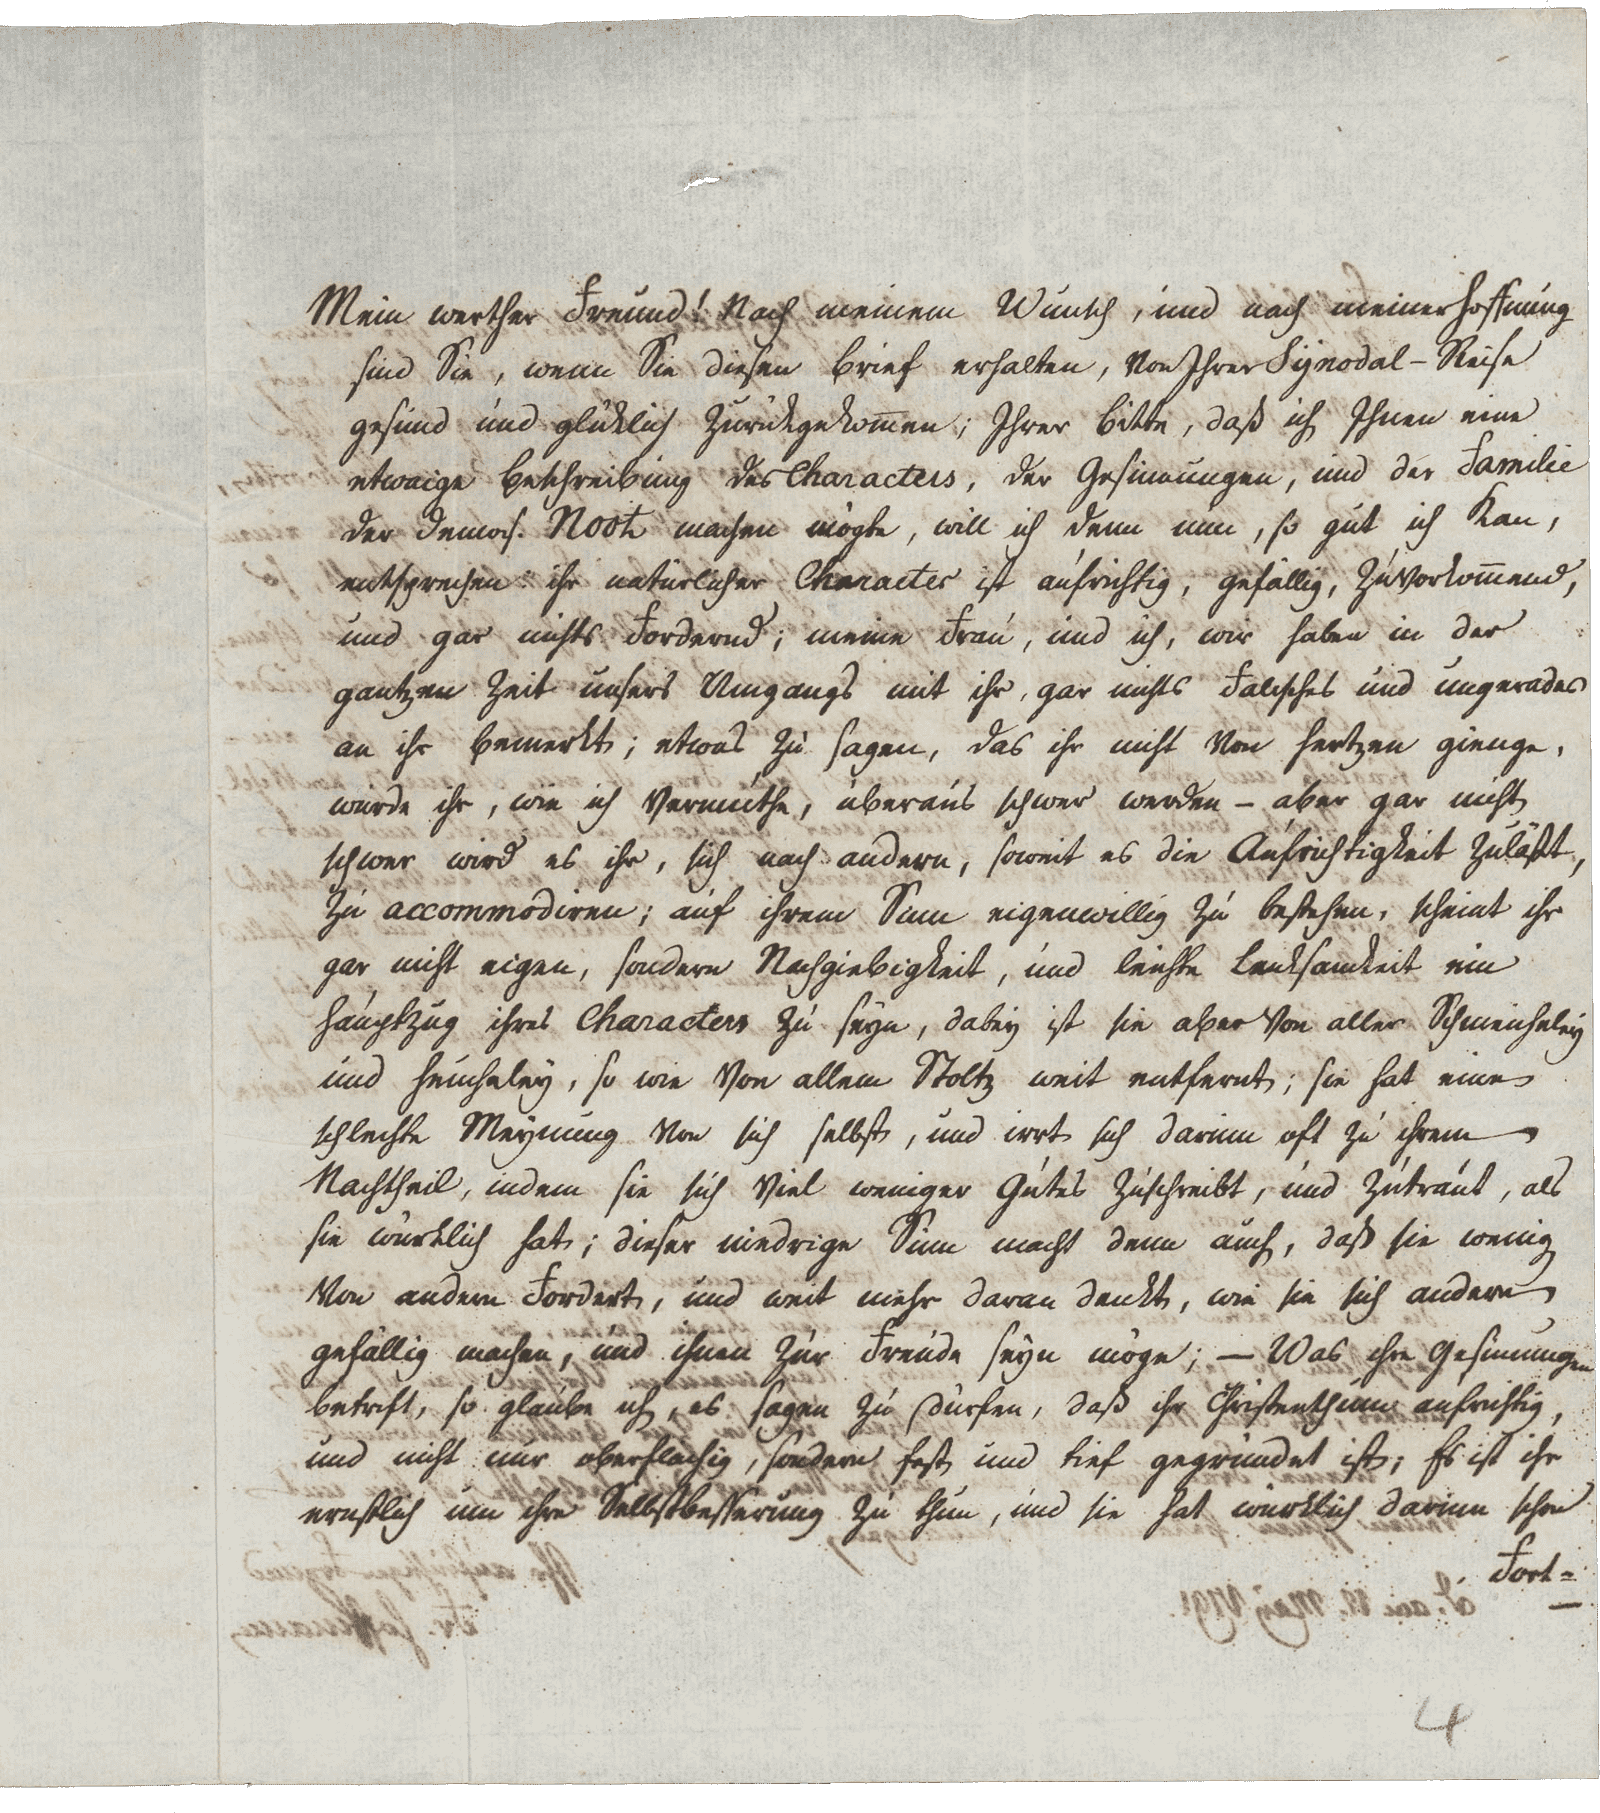 Mein werther Freund! Nach meinem Wunsch, und nach meiner Hoffnung
sind Sie, wenn Sie diesen Brief erhalten, von Ihrer Synodal-Reise
gesund und glüklich zurückgekom̅en; Ihrer Bitte, daß ich Ihnen eine
etwaige Beschreibung des Characters, der Gesinnungen, und der Familie
der Demois. Noot machen mögte, will ich denn nun, so gut ich kan,
entsprechen: ihr natürlicher Character ist aufrichtig, gefällig, zuvorkom̅end,
und gar nichts fordernd; meine Frau, und ich, wir haben in der
gantzen Zeit unsers Umgangs mit ihr, gar nichts falsches und ungerades
an ihr bemerkt; etwas zu sagen, das ihr nicht von Hertzen gienge,
würde ihr, wie ich vermuthe, überaus schwer werden – aber gar nicht
schwer wird es ihr, sich nach andern, soweit es die Aufrichtigkeit zuläßt,
zu accommodiren; auf ihrem Sinn eigenwillig zu bestehen, scheint ihr
gar nicht eigen, sondern Nachgiebigkeit, und leichte Lenksamkeit ein
Hauptzug ihres Characters zu seyn, dabey ist sie aber von aller Schmeicheley
und Heucheley, so wie von allem Stoltz weit entfernt; sie hat eine
schlechte Meynung von sich selbst, und irrt sich darinn oft zu ihrem
Nachtheil, indem sie sich viel weniger Gutes zuschreibt, und zutraut, als
sie würklich hat; dieser niedrige Sinn macht denn auch, daß sie wenig
von andern fordert, und weit mehr daran denkt, wie sie sich andern
gefällig machen, und ihnen zur Freude seyn möge; – Was ihre Gesinnungen
betrift, so glaube ich, es sagen zu dürfen, daß ihr Christenthum aufrichtig,
und nicht nur oberflachig, sondern fest und tief gegründet ist; Es ist ihr
ernstlich um ihre Selbstbesserung zu thun, und sie hat würklich darinn schon
Fort=
4